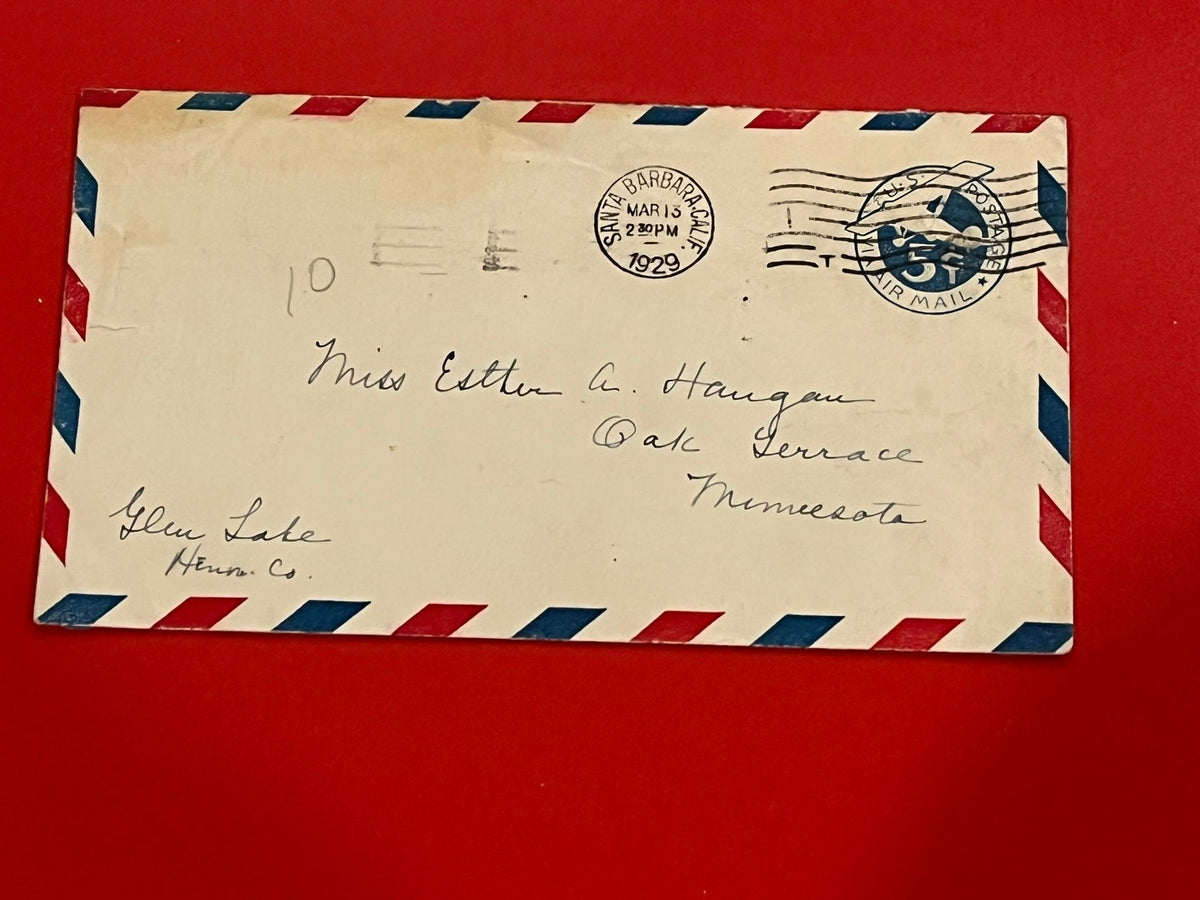 SANTA BARBARA, CALIF.
MAR 13
2 30 PM
1929
T
U.S. POSTAGE
5¢
VIA AIR MAIL
10
Miss Esther A. Haugan
Oak Terrace
Minnesota
Glen Lake
Henn. Co.